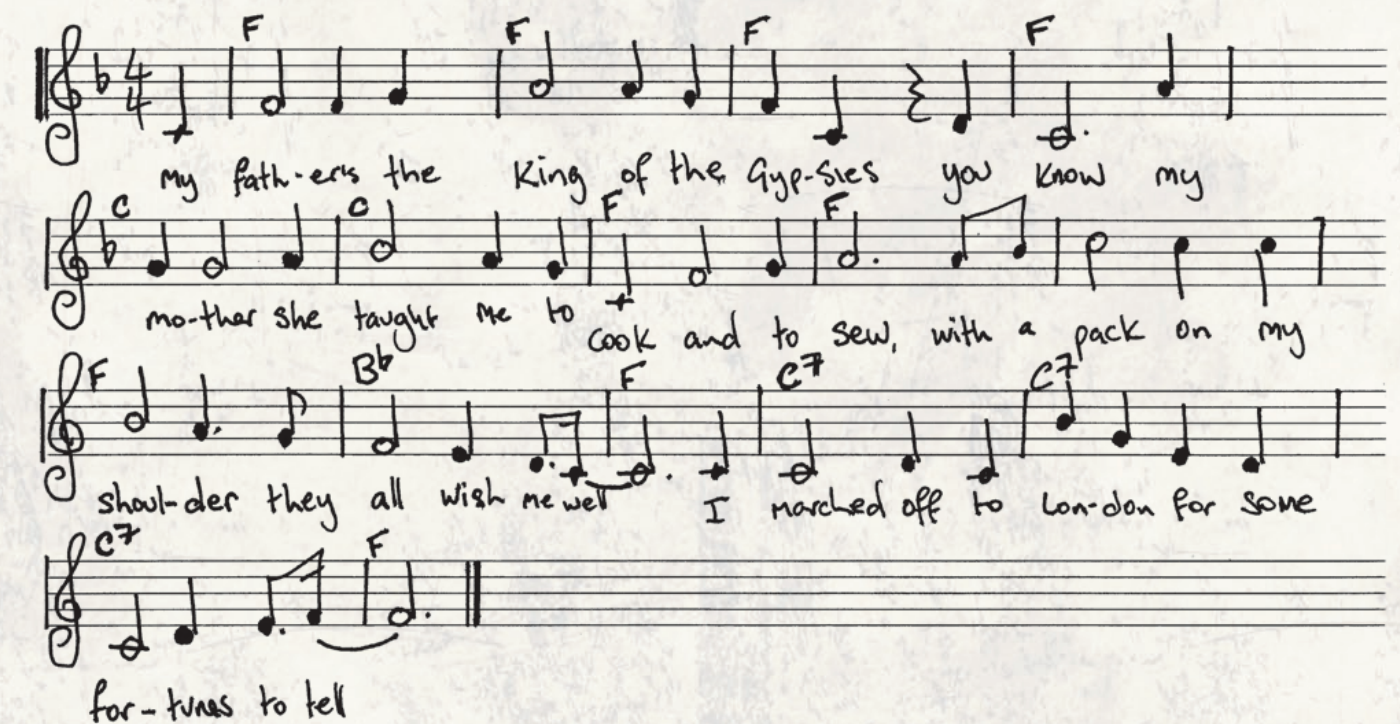 F F F F
4
4
My fath-er's the King of the Gyp-sies you know my
C C F F
mo-ther she taught me to cook and to sew, with a pack on my
F B♭ F C7 C7
shoul-der they all wish me well I marched off to Lon-don for some
C7 F
for-tunes to tell